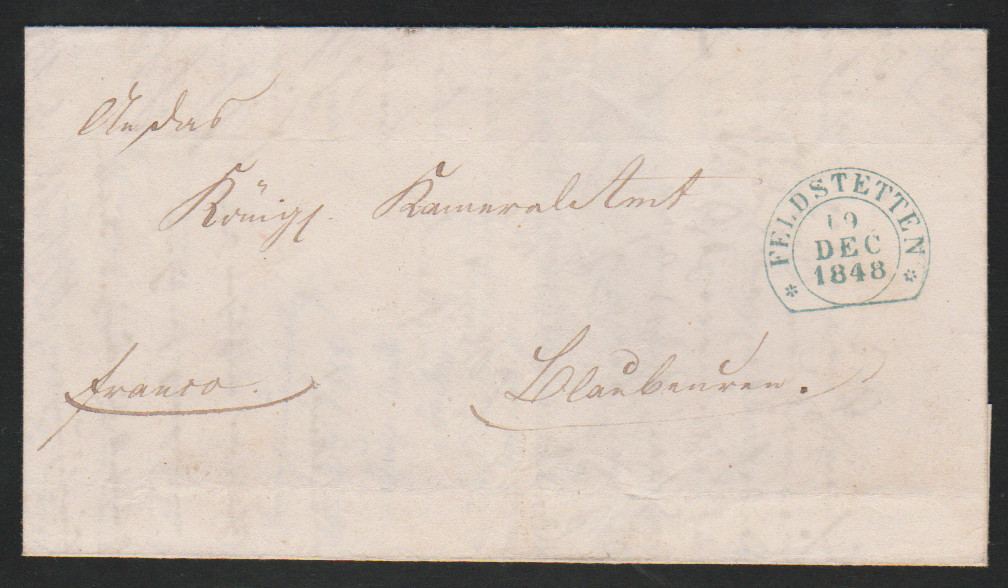 An das
Königl. Kameral Amt
FELDSTETTEN
19
DEC
1848
franco.
Blaubeuren.